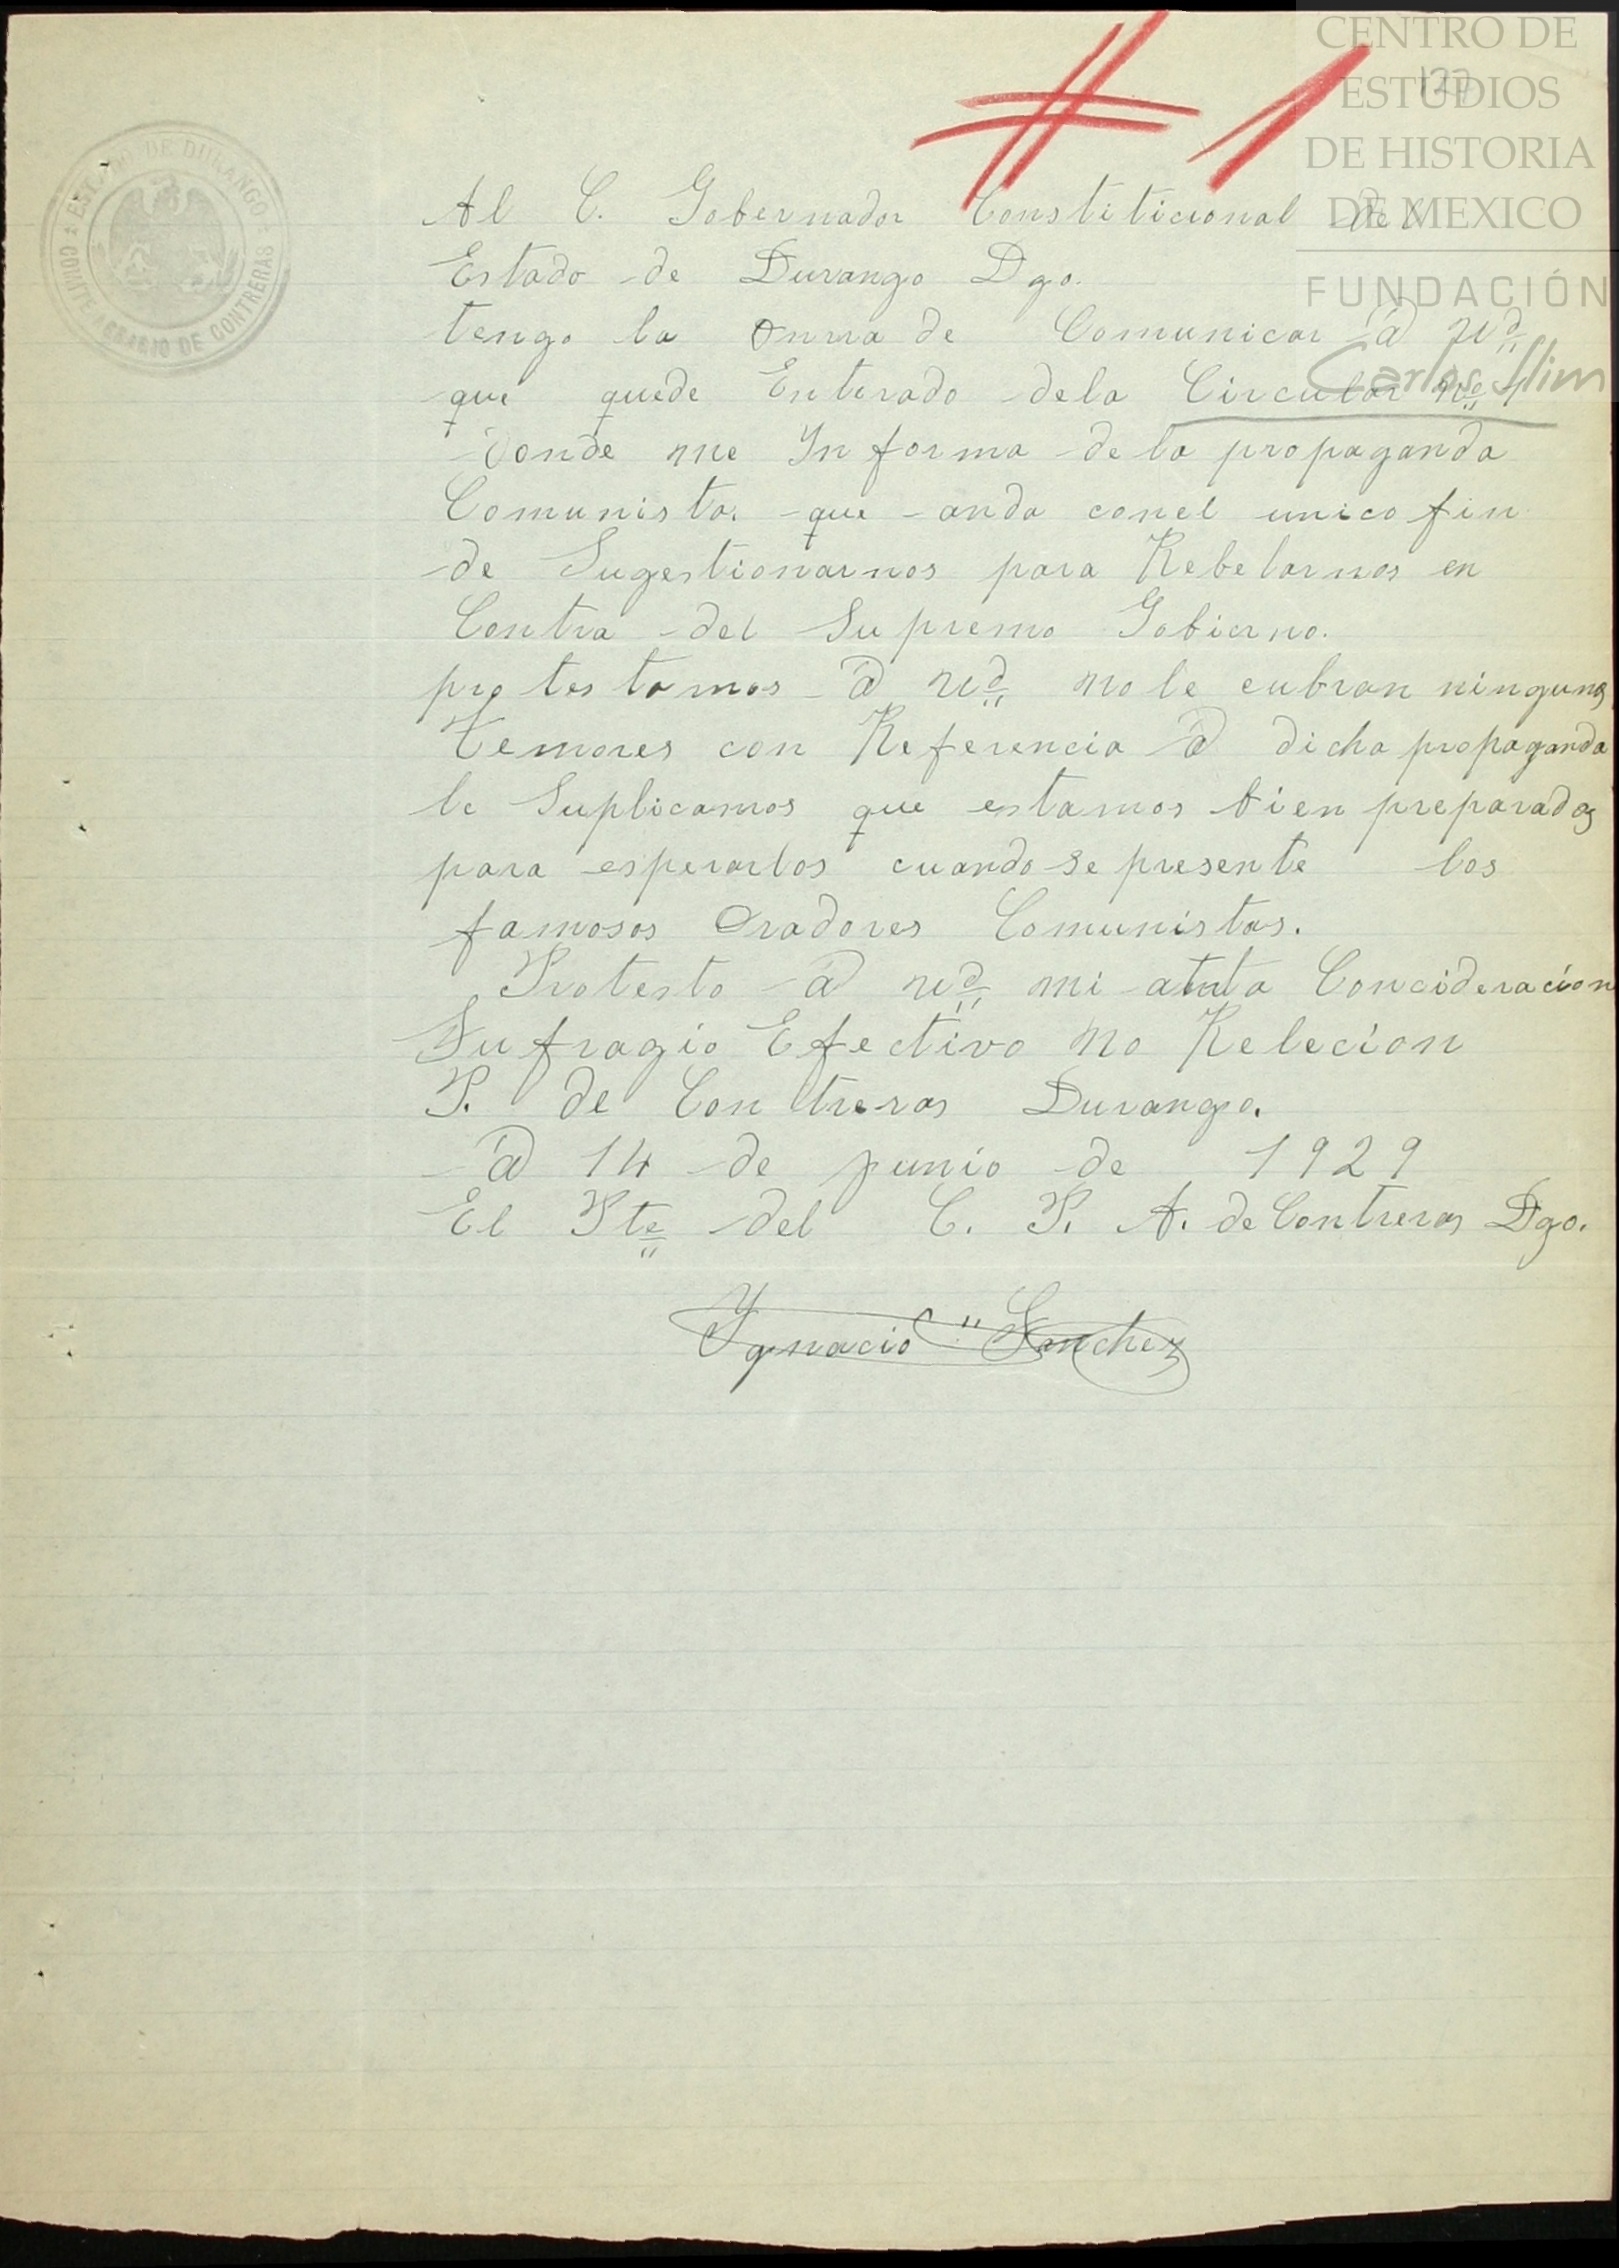 # 1
ESTADO DE DURANGO
COMITE AGRARIO DE CONTRERAS
CENTRO DE
ESTUDIOS
DE HISTORIA
DE MEXICO
FUNDACIÓN
Carlos Slim
Al C. Gobernador Constiticional del
Estado de Durango Dgo.
tengo la onrra de Comunicar á ud
que quede Enterado dela Circular no 1
donde me Informa de la propaganda
Comunista. que anda conel unico fin
de Sugestionarnos para Rebelarnos en
Contra del Supremo Gobierno.
protestamos á ud no le cubran ningunos
temores con Referencia á dicha propaganda
le Suplicamos que estamos bien preparados
para esperarlos cuando se presente los
famosos Oradores Comunistas.
Protesto á ud mi atnta Concideración
Sufragio Efectivo no Relecíon
P. de Contreras Durango.
á 14 de junio de 1929
El Pte del C. P. A. de Contreras Dgo.
Ygnacio Sanchez